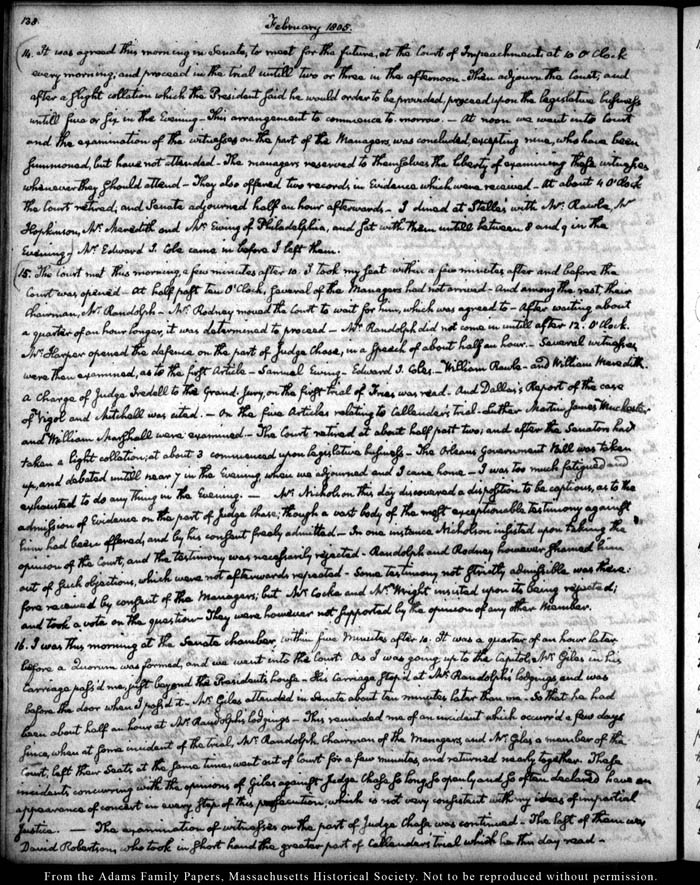 138.
February 1805.
14. It was agreed this morning in Senate, to meet for the future, at the Court of Impeachment at 10 O'Clock
every morning, and proceed in the trial untill two or three in the afternoon. Then adjourn the Court, and
after a slight collation which the President said he would order to be provided, proceed upon the legislative business
untill five or six in the Evening. This arrangement to commence to-morrow. — At noon we went into Court
and the examination of the witnesses on the part of the Managers, was concluded, excepting nine, who have been
summoned, but have not attended - The managers reserved to themselves the liberty of examining these witnesses
whenever they should attend - They also offered two records in Evidence which were received - At about 4 O'Clock
the Court retired, and Senate adjourned half an hour afterwards. - I dined at Stelle's with Mr. Rawle, Mr
Hopkinson, Mr Meredith and Mr Ewing of Philadelphia, and sat with them untill between 8 and 9 in the
Evening. Mr. Edward J. Cole came in before I left them.
15. The Court met this morning, a few minutes after 10. I took my seat within a few minutes after and before the
Court was opened - At half past ten O'Clock, several of the Managers had not arrived - And among the rest, their
Chairman, Mr. Randolph - Mr. Rodney moved the Court to wait for him, which was agreed to - After waiting about
a quarter of an hour longer, it was determined to proceed - Mr. Randolph did not come in untill after 12. O'Clock.
Mr. Harper opened the defence on the part of Judge Chase, in a speech of about half an hour. - Several witnesses
were then examined, as to the first Article - Samuel Ewing - Edward J. Coles - William Rawle - and William Meredith.
A Charge of Judge Iredell to the Grand-Jury, on the first trial of Fries was read. And Dallas's Report of the case
of Vigol and Mitchell was cited. - On the five Articles relating to Callender's trial - Luther Martin James Winchester
and William Marshall were examined - The Court retired at about half past two; and after the Senators had
taken a light collation, at about 3 commenced upon legislative business - The Orleans Government Bill was taken
up, and debated untill near 7 in the Evening, when we adjourned and I came home - I was too much fatigued and
exhausted to do any thing in the Evening. — Mr. Nicholson this day discovered a disposition to be captious, as to the
admission of Evidence on the part of Judge Chase; though a vast body of the most exceptionable testimony against
him had been offered, and by his consent freely admitted - In one instance Nicholson insisted upon taking the
opinion of the Court, and the testimony was necessarily rejected - Randolph and Rodney however shamed him
out of such objections, which were not afterwards repeated - Some testimony not strictly admissible was there-
fore received by consent of the Managers; but Mr. Cocke and Mr. Wright insisted upon its being rejected;
and took a vote on the question - They were however not supported by the opinion of any other Member.
16. I was this morning at the Senate chamber, within five Minutes after 10. It was a quarter of an hour later
before a Quorum was formed, and we went into the Court. As I was going up to the Capitol, Mr. Giles in his
Carriage pass'd me, just beyond the President's house - His carriage stop'd at Mr. Randolph's lodgings and was
before the door when I pass'd it - Mr. Giles attended in Senate about ten minutes later than me. So that he had
been about half an hour at Mr. Randolph's lodgings - This reminded me of an incident which occurr'd a few days
since, when at some incident of the trial, Mr. Randolph, Chairman of the Managers, and Mr. Giles a member of the
Court, left their Seats, at the same time, went out of Court for a few minutes, and returned nearly together. These
incidents concurring with the opinions of Giles against Judge Chase so long, so openly and so often declared have an
appearance of concert in every step of this prosecution, which is not very consistent with my ideas of impartial
Justice. — The examination of witnesses on the part of Judge Chase was continued - The last of them was
David Robertson, who took in short hand the greater part of Callender's trial which he this day read -
From the Adams Family Papers, Massachusetts Historical Society. Not to be reproduced without permission.